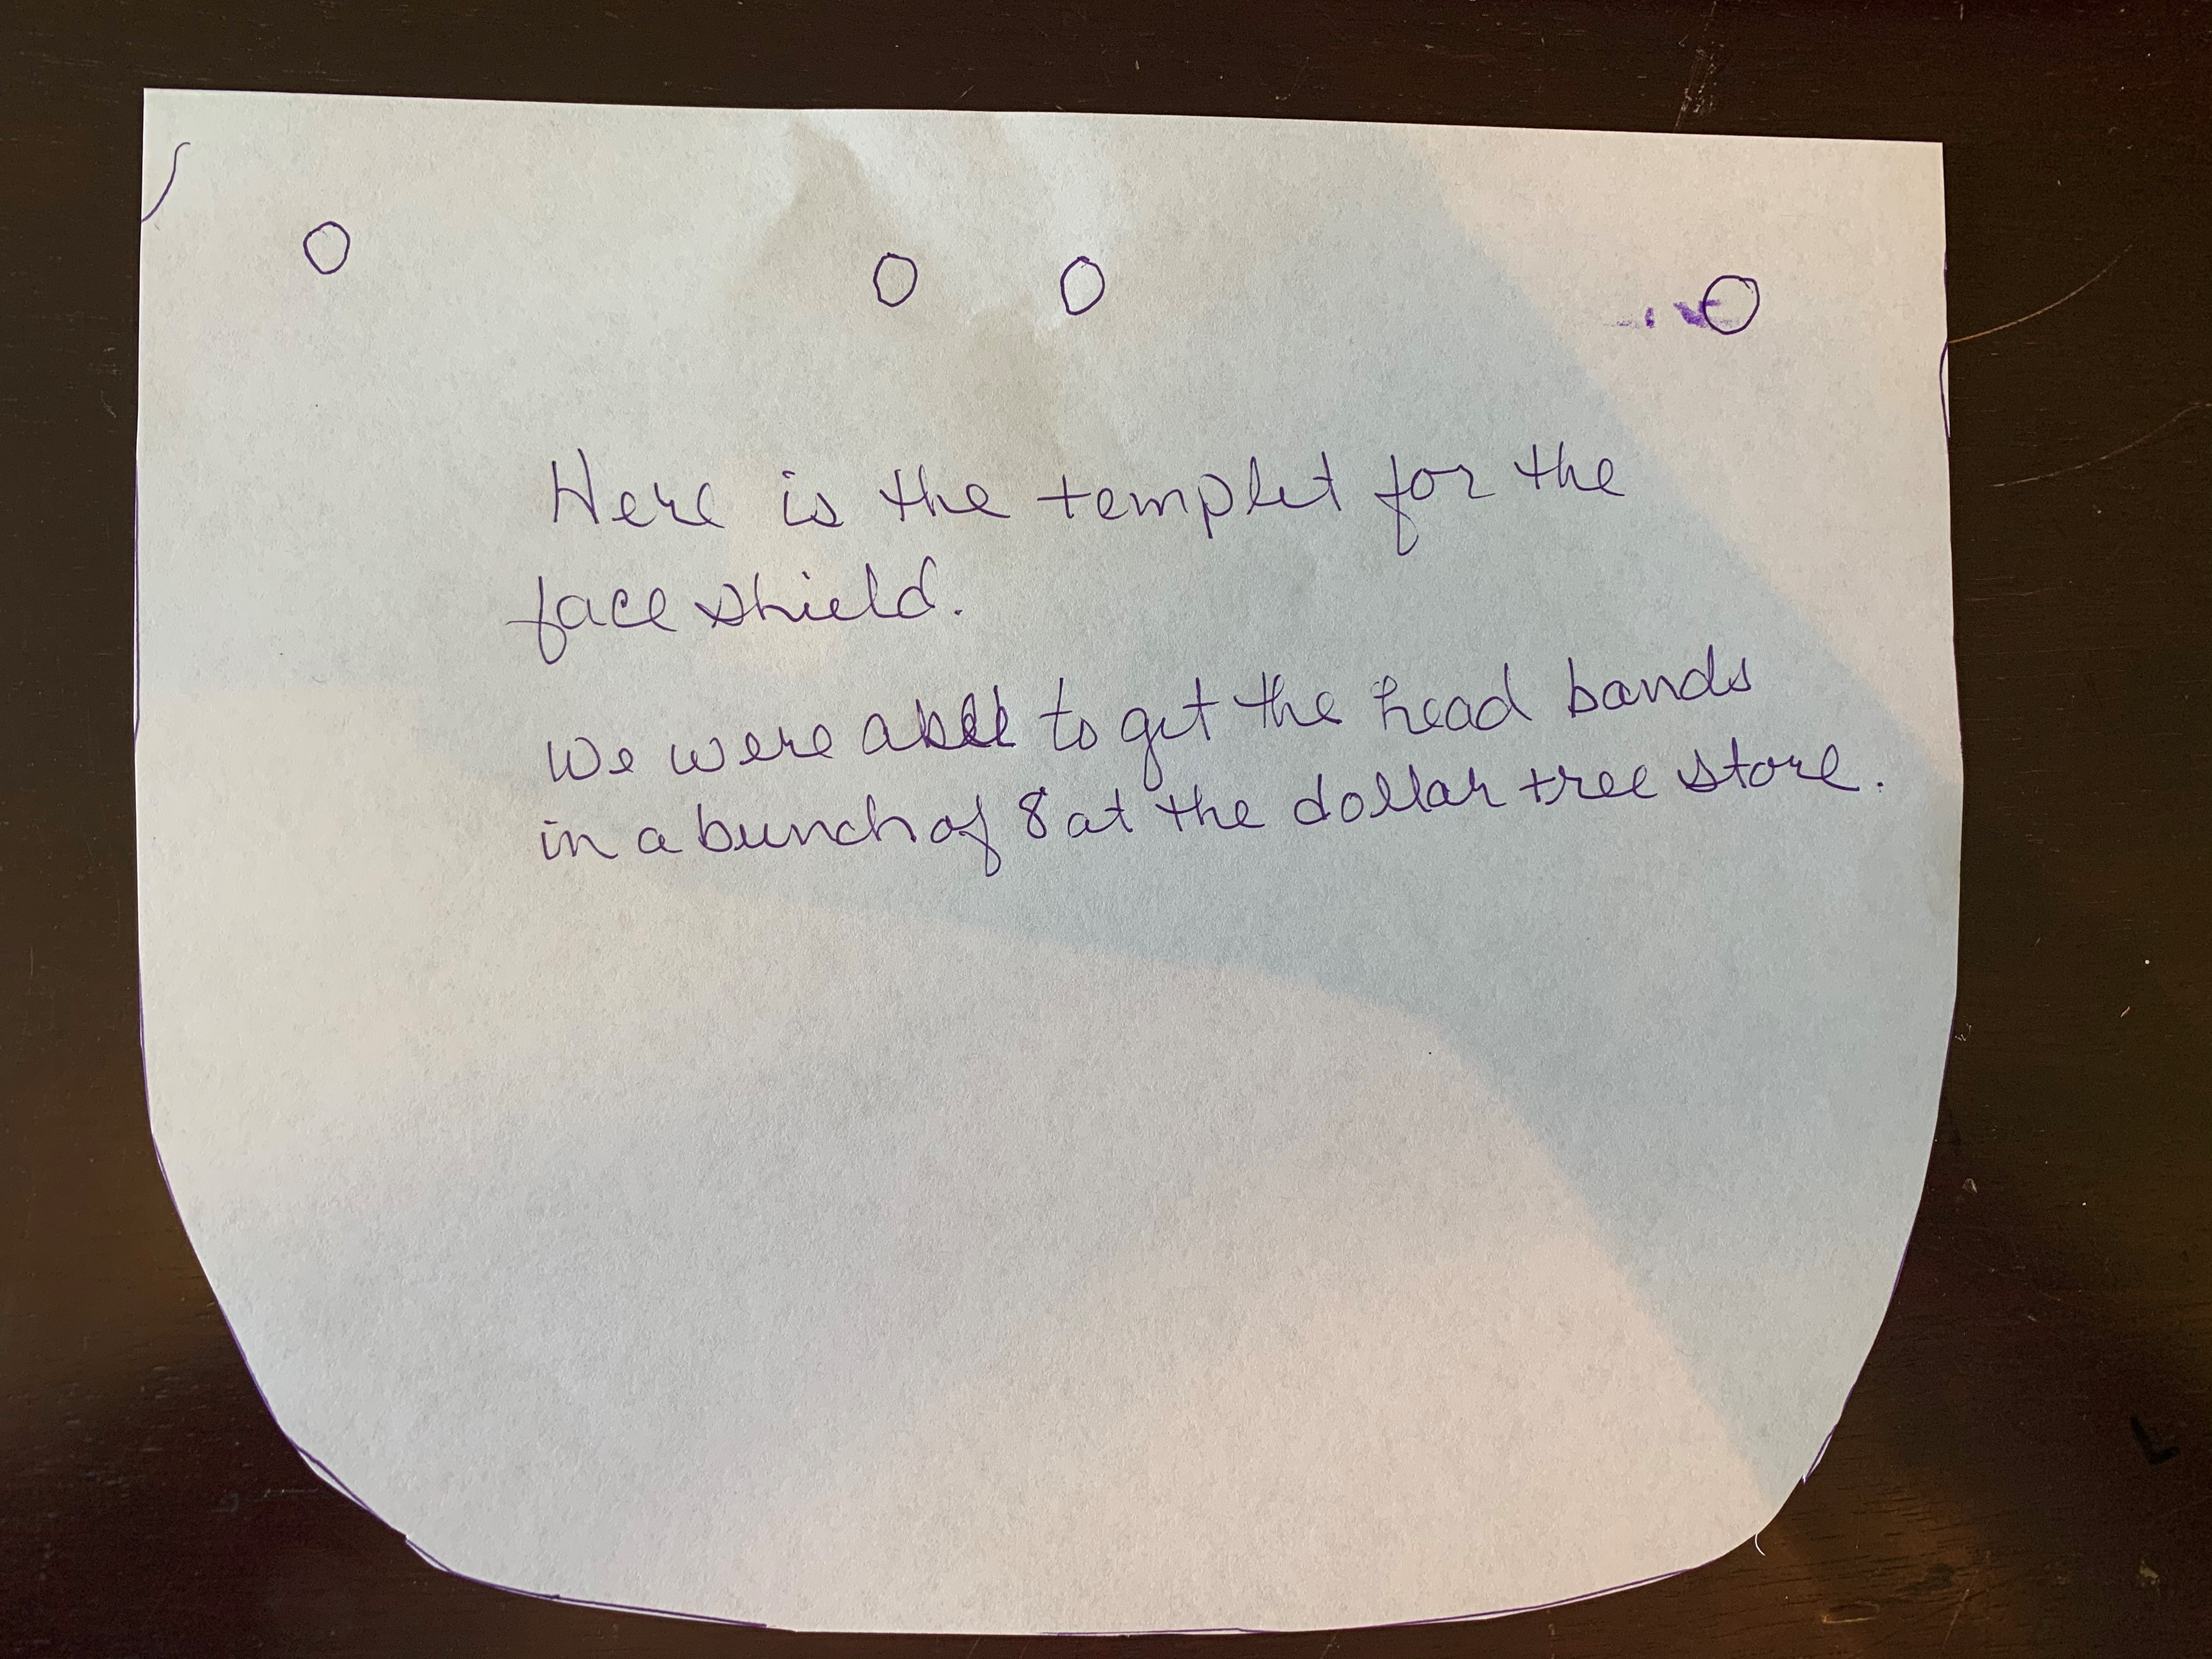 Here is the templet for the
face shield.
We were able to get the head bands
in a bunch of 8 at the dollar tree store.